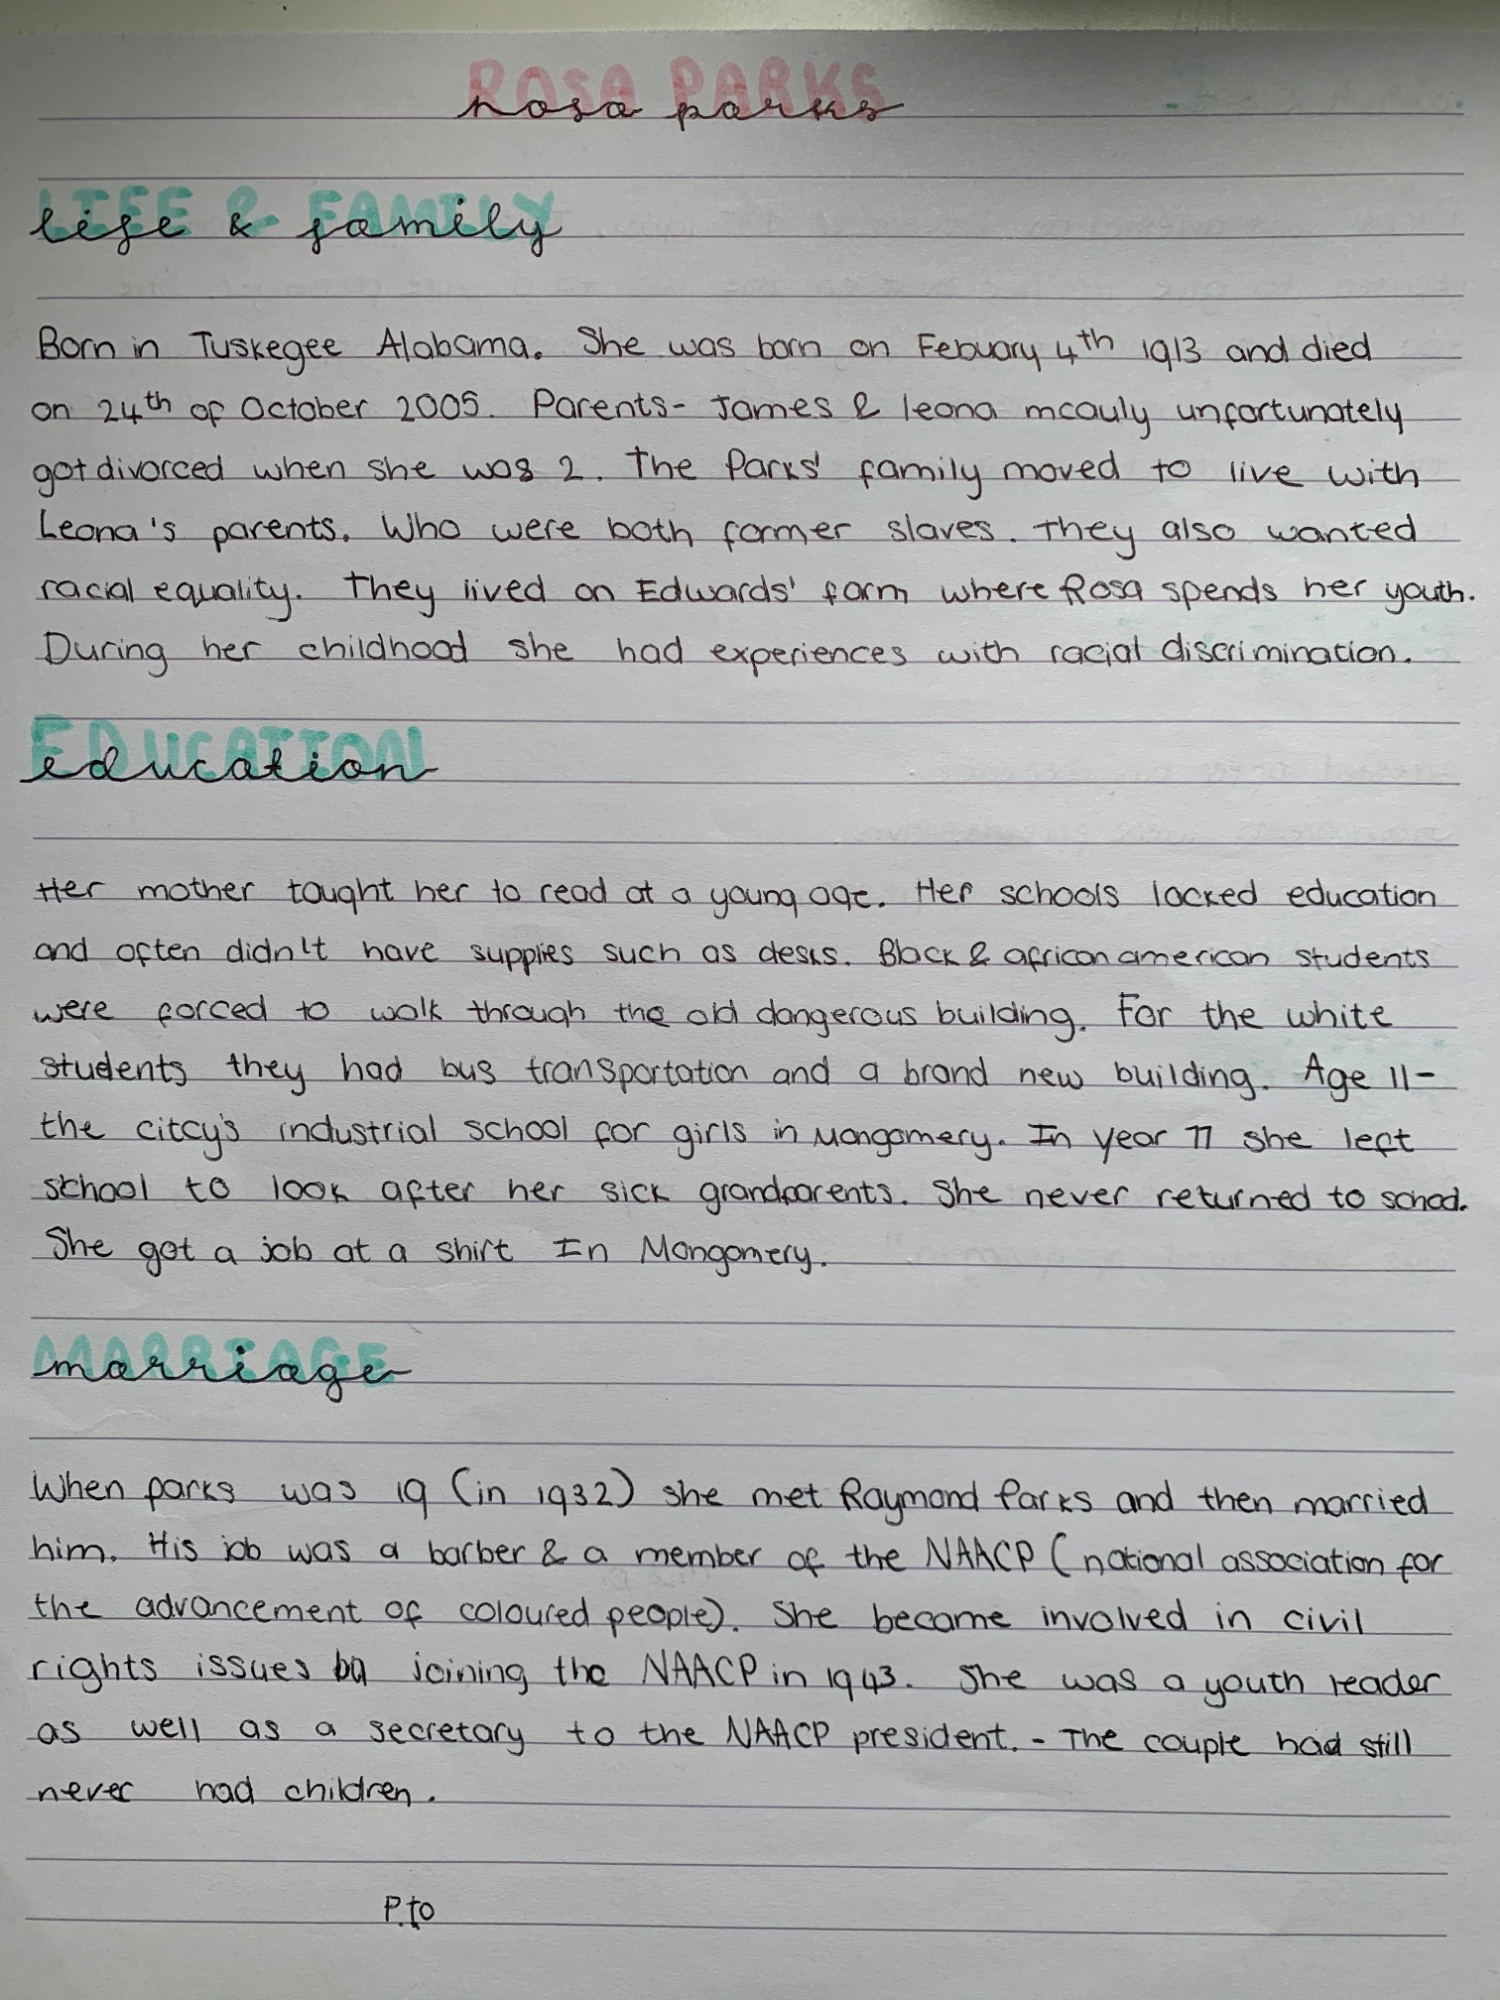 ROSA PARKS
rosa parks
LIFE & FAMILY
life & family
Born in Tuskegee Alabama. She was born on Febuary 4th 1913 and died
on 24th of October 2005. Parents- James & leona mcauly unfortunately
got divorced when she was 2. The Parks' family moved to live with
Leona's parents. Who were both former slaves. They also wanted
racial equality. They lived on Edwards' farm where Rosa spends her youth.
During her childhood she had experiences with racial discrimination.
EDUCATION
education
Her mother taught her to read at a young age. Her schools lacked education
and often didn't have supplies such as desks. Black & african american students
were forced to walk through the old dangerous building. For the white
students they had bus transportation and a brand new building. Age 11-
the citcy's industrial school for girls in Mongomery. In year 11 she left
school to look after her sick grandparents. She never returned to school.
She got a job at a shirt In Mongomery.
MARRIAGE
marriage
When parks was 19 (in 1932) she met Raymond Parks and then married
him. His job was a barber & a member of the NAACP (national association for
the advancement of coloured people). She became involved in civil
rights issues by joining the NAACP in 1943. She was a youth leader
as well as a secretary to the NAACP president. - The couple had still
never had children.
P.to